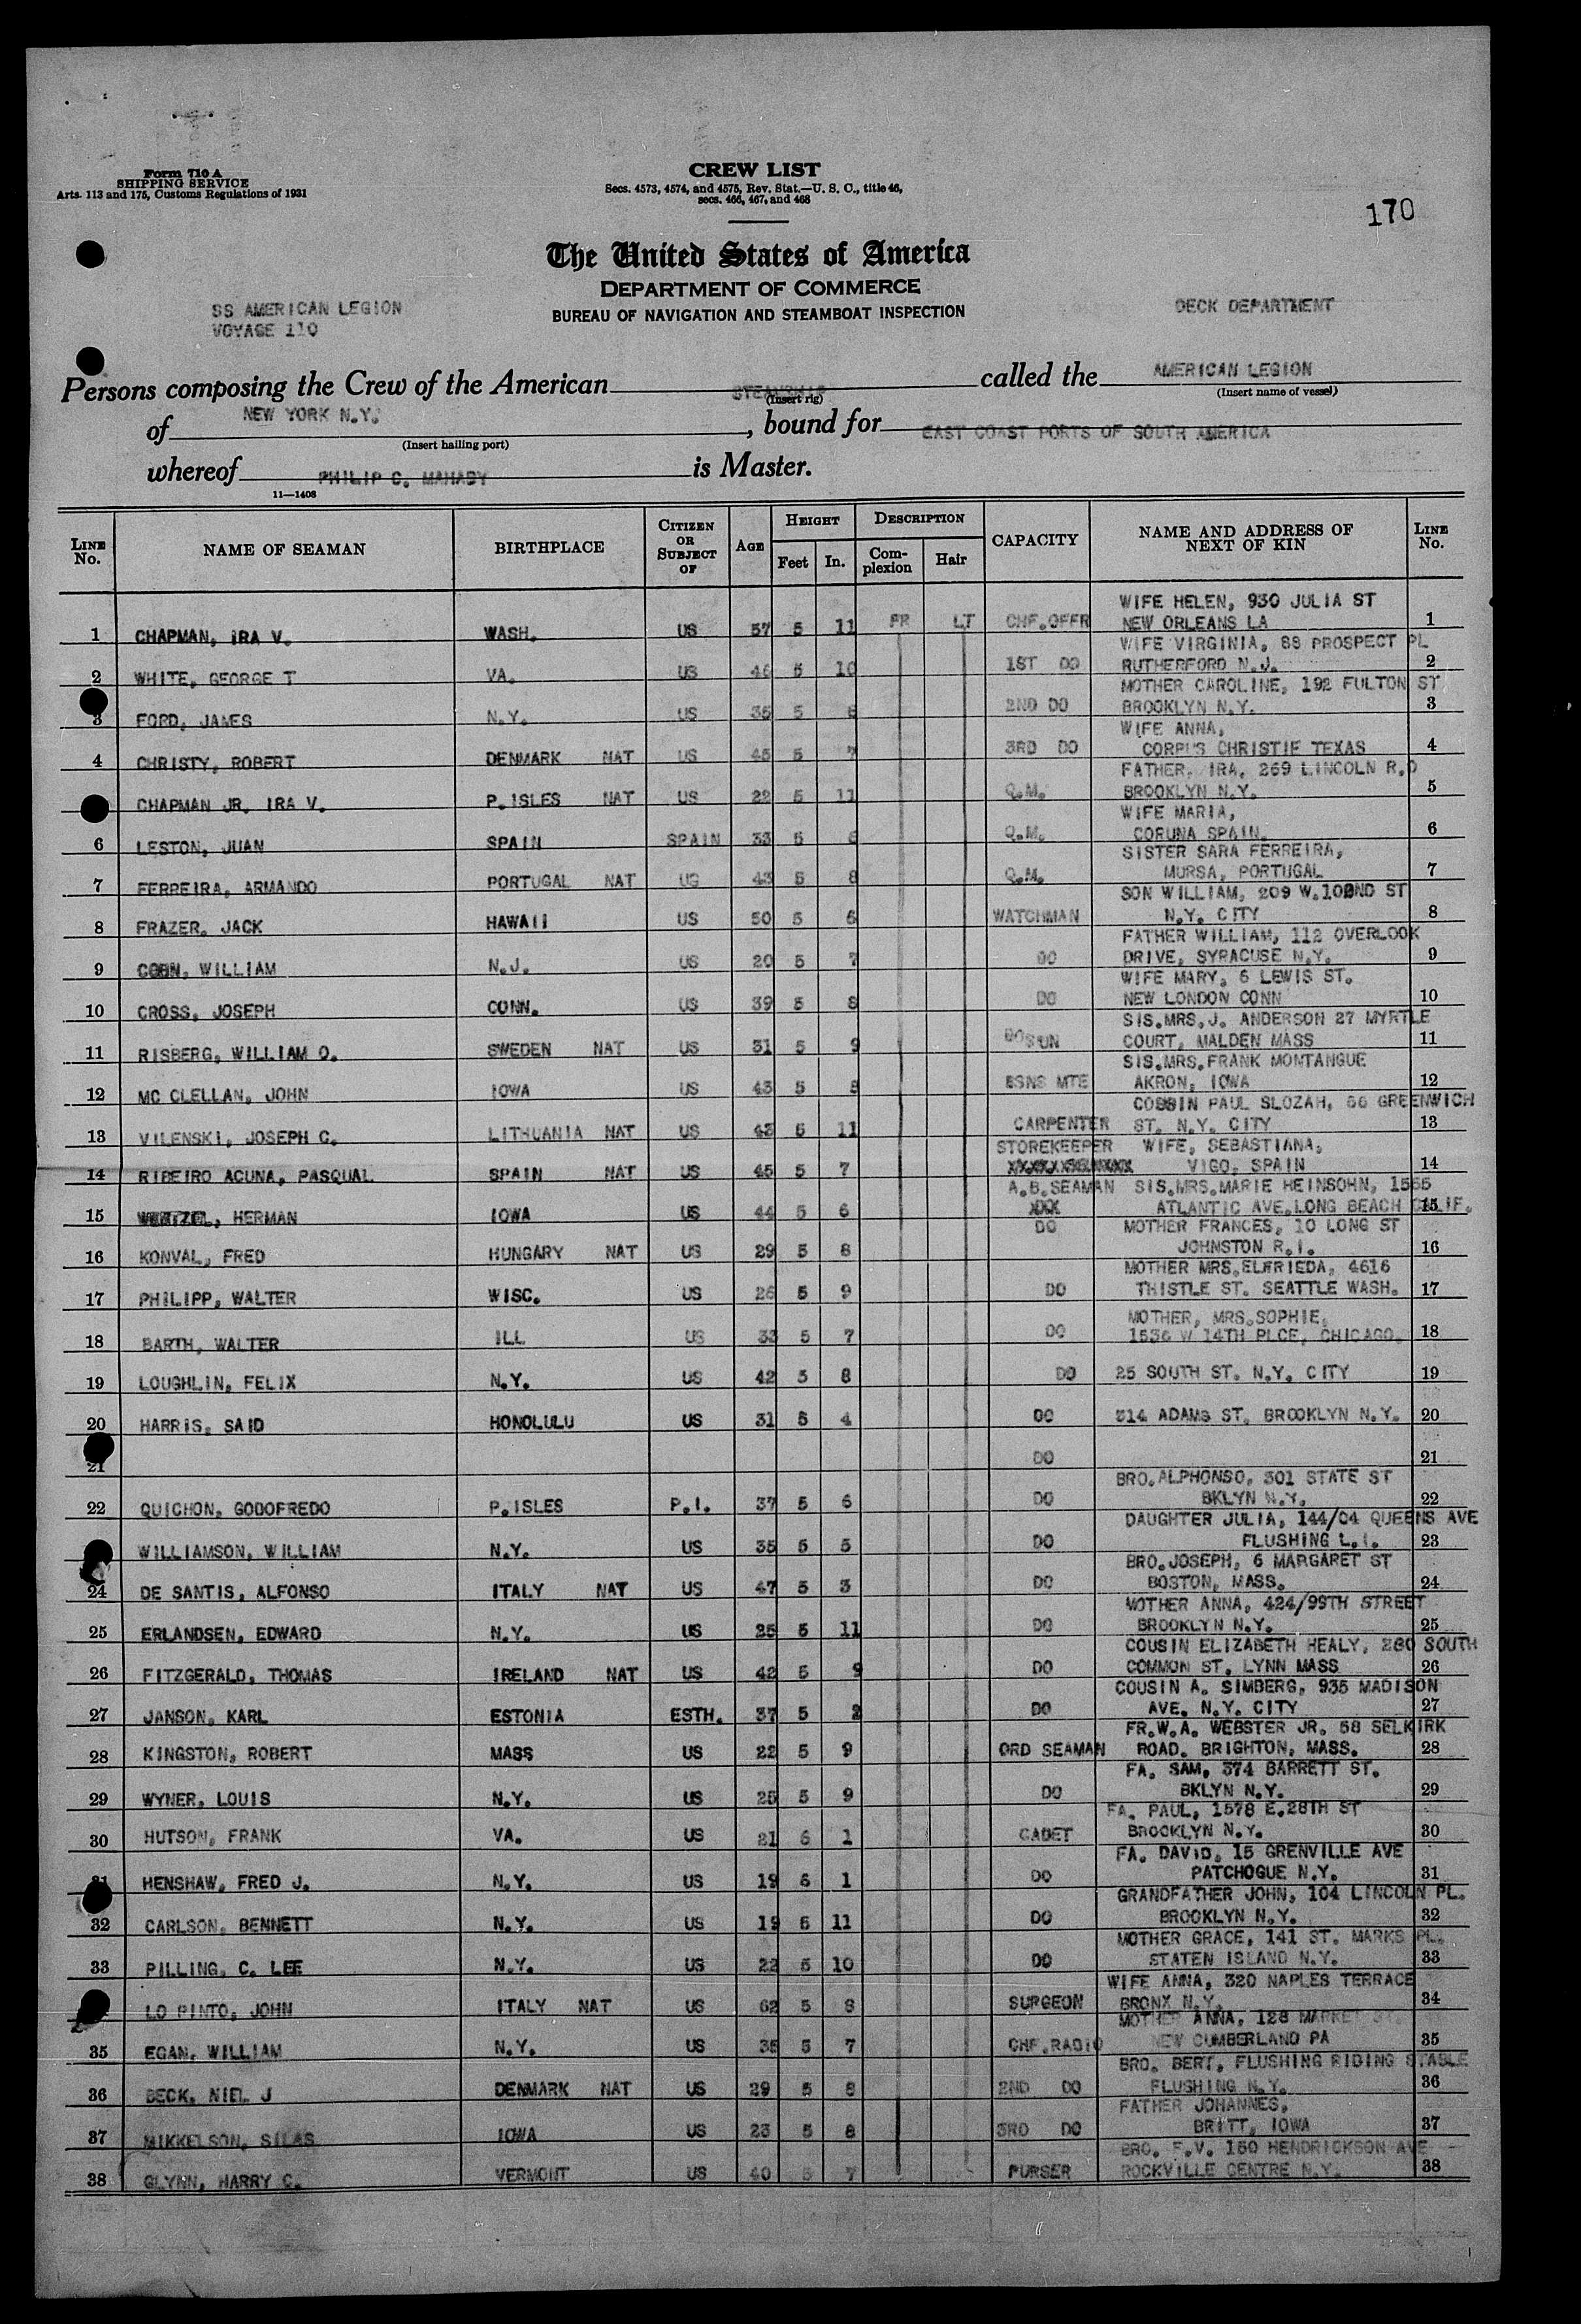 Form 710 A
SHIPPING SERVICE
Arts. 113 and 175, Customs Regulations of 1931
CREW LIST
Secs. 4573, 4574, and 4575, Rev. Stat.—U. S. C., title 46,
secs. 466, 467, and 468
170
The United States of America
DEPARTMENT OF COMMERCE
BUREAU OF NAVIGATION AND STEAMBOAT INSPECTION
SS AMERICAN LEGION
VOYAGE 110
DECK DEPARTMENT
Persons composing the Crew of the American STEAMSHIP called the AMERICAN LEGION
(Insert rig) (Insert name of vessel)
of NEW YORK N.Y. , bound for EAST COAST PORTS OF SOUTH AMERICA
(Insert hailing port)
whereof PHILIP C. MAHADY is Master.
11—1408
LINE No. NAME OF SEAMAN BIRTHPLACE CITIZEN OR SUBJECT OF AGE HEIGHT Feet In. DESCRIPTION Complexion Hair CAPACITY NAME AND ADDRESS OF NEXT OF KIN LINE No.
WIFE HELEN, 930 JULIA ST
1 CHAPMAN, IRA V. WASH. US 57 5 11 FR LT CHF.OFFR NEW ORLEANS LA 1
WIFE VIRGINIA, 88 PROSPECT PL
2 WHITE, GEORGE T VA. US 46 5 10 1ST DO RUTHERFORD N.J. 2
MOTHER CAROLINE, 192 FULTON ST
3 FORD, JAMES N.Y. US 35 5 BROOKLYN N.Y. 3
WIFE ANNA,
4 CHRISTY, ROBERT DENMARK NAT US 45 5 7 3RD DO CORPUS CHRISTIE TEXAS 4
FATHER, IRA, 269 LINCOLN R.D
CHAPMAN JR. IRA V. P.ISLES NAT US 22 5 11 Q.M. BROOKLYN N.Y. 5
WIFE MARIA,
6 LESTON, JUAN SPAIN SPAIN 33 5 6 Q.M. CORUNA SPAIN. 6
SISTER SARA FERREIRA,
7 FERREIRA, ARMANDO PORTUGAL NAT US 43 5 8 Q.M. MURSA, PORTUGAL 7
SON WILLIAM, 209 W.102ND ST
8 FRAZER, JACK HAWAII US 50 5 6 WATCHMAN N.Y. CITY 8
FATHER WILLIAM, 112 OVERLOOK
9 WILLIAM N.J. US 20 5 7 DO DRIVE, SYRACUSE N.Y. 9
WIFE MARY, 6 LEWIS ST.
10 CROSS, JOSEPH CONN. US 39 5 8 DO NEW LONDON CONN 10
SIS.MRS.J. ANDERSON 27 MYRTLE
11 RISBERG, WILLIAM O. SWEDEN NAT US 31 5 9 BOSUN COURT, MALDEN MASS 11
SIS.MRS.FRANK MONTANGUE
12 MC CLELLAN, JOHN IOWA US 43 5 8 BSNS MTE AKRON, IOWA 12
COUSIN PAUL SLOZAH, 86 GREENWICH
13 VILENSKI, JOSEPH C. LITHUANIA NAT US 43 5 11 CARPENTER ST. N.Y. CITY 13
STOREKEEPER WIFE, SEBASTIANA,
14 RIBEIRO ACUNA, PASQUAL SPAIN NAT US 45 5 7 VIGO, SPAIN 14
A.B.SEAMAN SIS.MRS.MARIE HEINSOHN, 1565
15 HERMAN IOWA US 44 5 6 XXX ATLANTIC AVE,LONG BEACH CALIF. 15
DO MOTHER FRANCES, 10 LONG ST
16 KONVAL, FRED HUNGARY NAT US 29 5 8 JOHNSTON R.I. 16
MOTHER MRS.ELFRIEDA, 4616
17 PHILIPP, WALTER WISC. US 26 5 9 DO THISTLE ST. SEATTLE WASH. 17
MOTHER, MRS.SOPHIE,
18 BARTH, WALTER ILL US 33 5 7 DO 1536 W 14TH PLCE, CHICAGO. 18
19 LOUGHLIN, FELIX N.Y. US 42 5 8 DO 25 SOUTH ST. N.Y. CITY 19
20 HARRIS, SAID HONOLULU US 31 5 4 DO 314 ADAMS ST. BROOKLYN N.Y. 20
21 DO 21
BRO.ALPHONSO, 301 STATE ST
22 QUICHON, GODOFREDO P.ISLES P.I. 37 5 6 DO BKLYN N.Y. 22
DAUGHTER JULIA, 144/04 QUEENS AVE
WILLIAMSON, WILLIAM N.Y. US 35 5 5 DO FLUSHING L.I. 23
BRO.JOSEPH, 6 MARGARET ST
24 DE SANTIS, ALFONSO ITALY NAT US 47 5 3 DO BOSTON, MASS. 24
MOTHER ANNA, 424/99TH STREET
25 ERLANDSEN, EDWARD N.Y. US 25 5 11 DO BROOKLYN N.Y. 25
COUSIN ELIZABETH HEALY, 280 SOUTH
26 FITZGERALD, THOMAS IRELAND NAT US 42 5 9 DO COMMON ST. LYNN MASS 26
COUSIN A. SIMBERG, 935 MADISON
27 JANSON, KARL ESTONIA ESTH. 37 5 2 DO AVE. N.Y. CITY 27
FR.W.A. WEBSTER JR. 58 SELKIRK
28 KINGSTON, ROBERT MASS US 22 5 9 ORD SEAMAN ROAD. BRIGHTON, MASS. 28
FA. SAM, 374 BARRETT ST.
29 WYNER, LOUIS N.Y. US 25 5 9 DO BKLYN N.Y. 29
FA. PAUL, 1578 E.28TH ST
30 HUTSON, FRANK VA. US 21 6 1 CADET BROOKLYN N.Y. 30
FA. DAVID, 15 GRENVILLE AVE
31 HENSHAW, FRED J. N.Y. US 19 6 1 DO PATCHOGUE N.Y. 31
GRANDFATHER JOHN, 104 LINCOLN PL.
32 CARLSON, BENNETT N.Y. US 19 5 11 DO BROOKLYN N.Y. 32
MOTHER GRACE, 141 ST. MARKS PL.
33 PILLING, C. LEE N.Y. US 22 5 10 DO STATEN ISLAND N.Y. 33
WIFE ANNA, 320 NAPLES TERRACE
LO PINTO, JOHN ITALY NAT US 62 5 8 SURGEON BRONX N.Y. 34
MOTHER ANNA, 128 MARKET ST.
35 EGAN, WILLIAM N.Y. US 35 5 7 CHF.RADIO NEW CUMBERLAND PA 35
BRO. BERT, FLUSHING RIDING STABLE
36 BECK, NIEL J DENMARK NAT US 29 5 8 2ND DO FLUSHING N.Y. 36
FATHER JOHANNES,
37 MIKKELSON, SILAS IOWA US 23 5 8 3RD DO BRITT, IOWA 37
BRO. F.V. 150 HENDRICKSON AVE
38 GLYNN, HARRY C. VERMONT US 40 5 7 PURSER ROCKVILLE CENTRE N.Y. 38